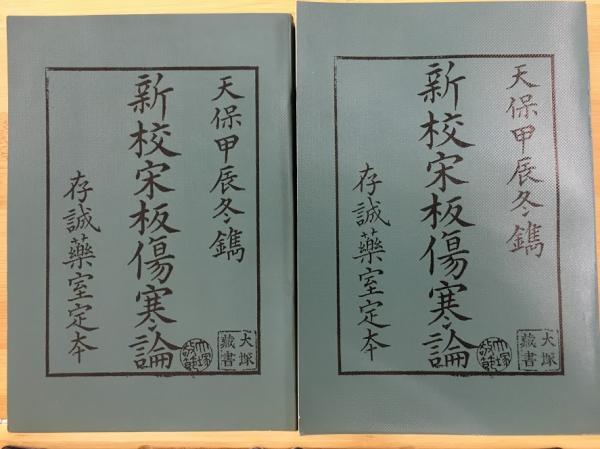 天保甲辰冬鐫
新校宋板傷寒論
存誠藥室定本
大塚
藏書
天保甲辰冬鐫
新校宋板傷寒論
存誠藥室定本
大塚
藏書